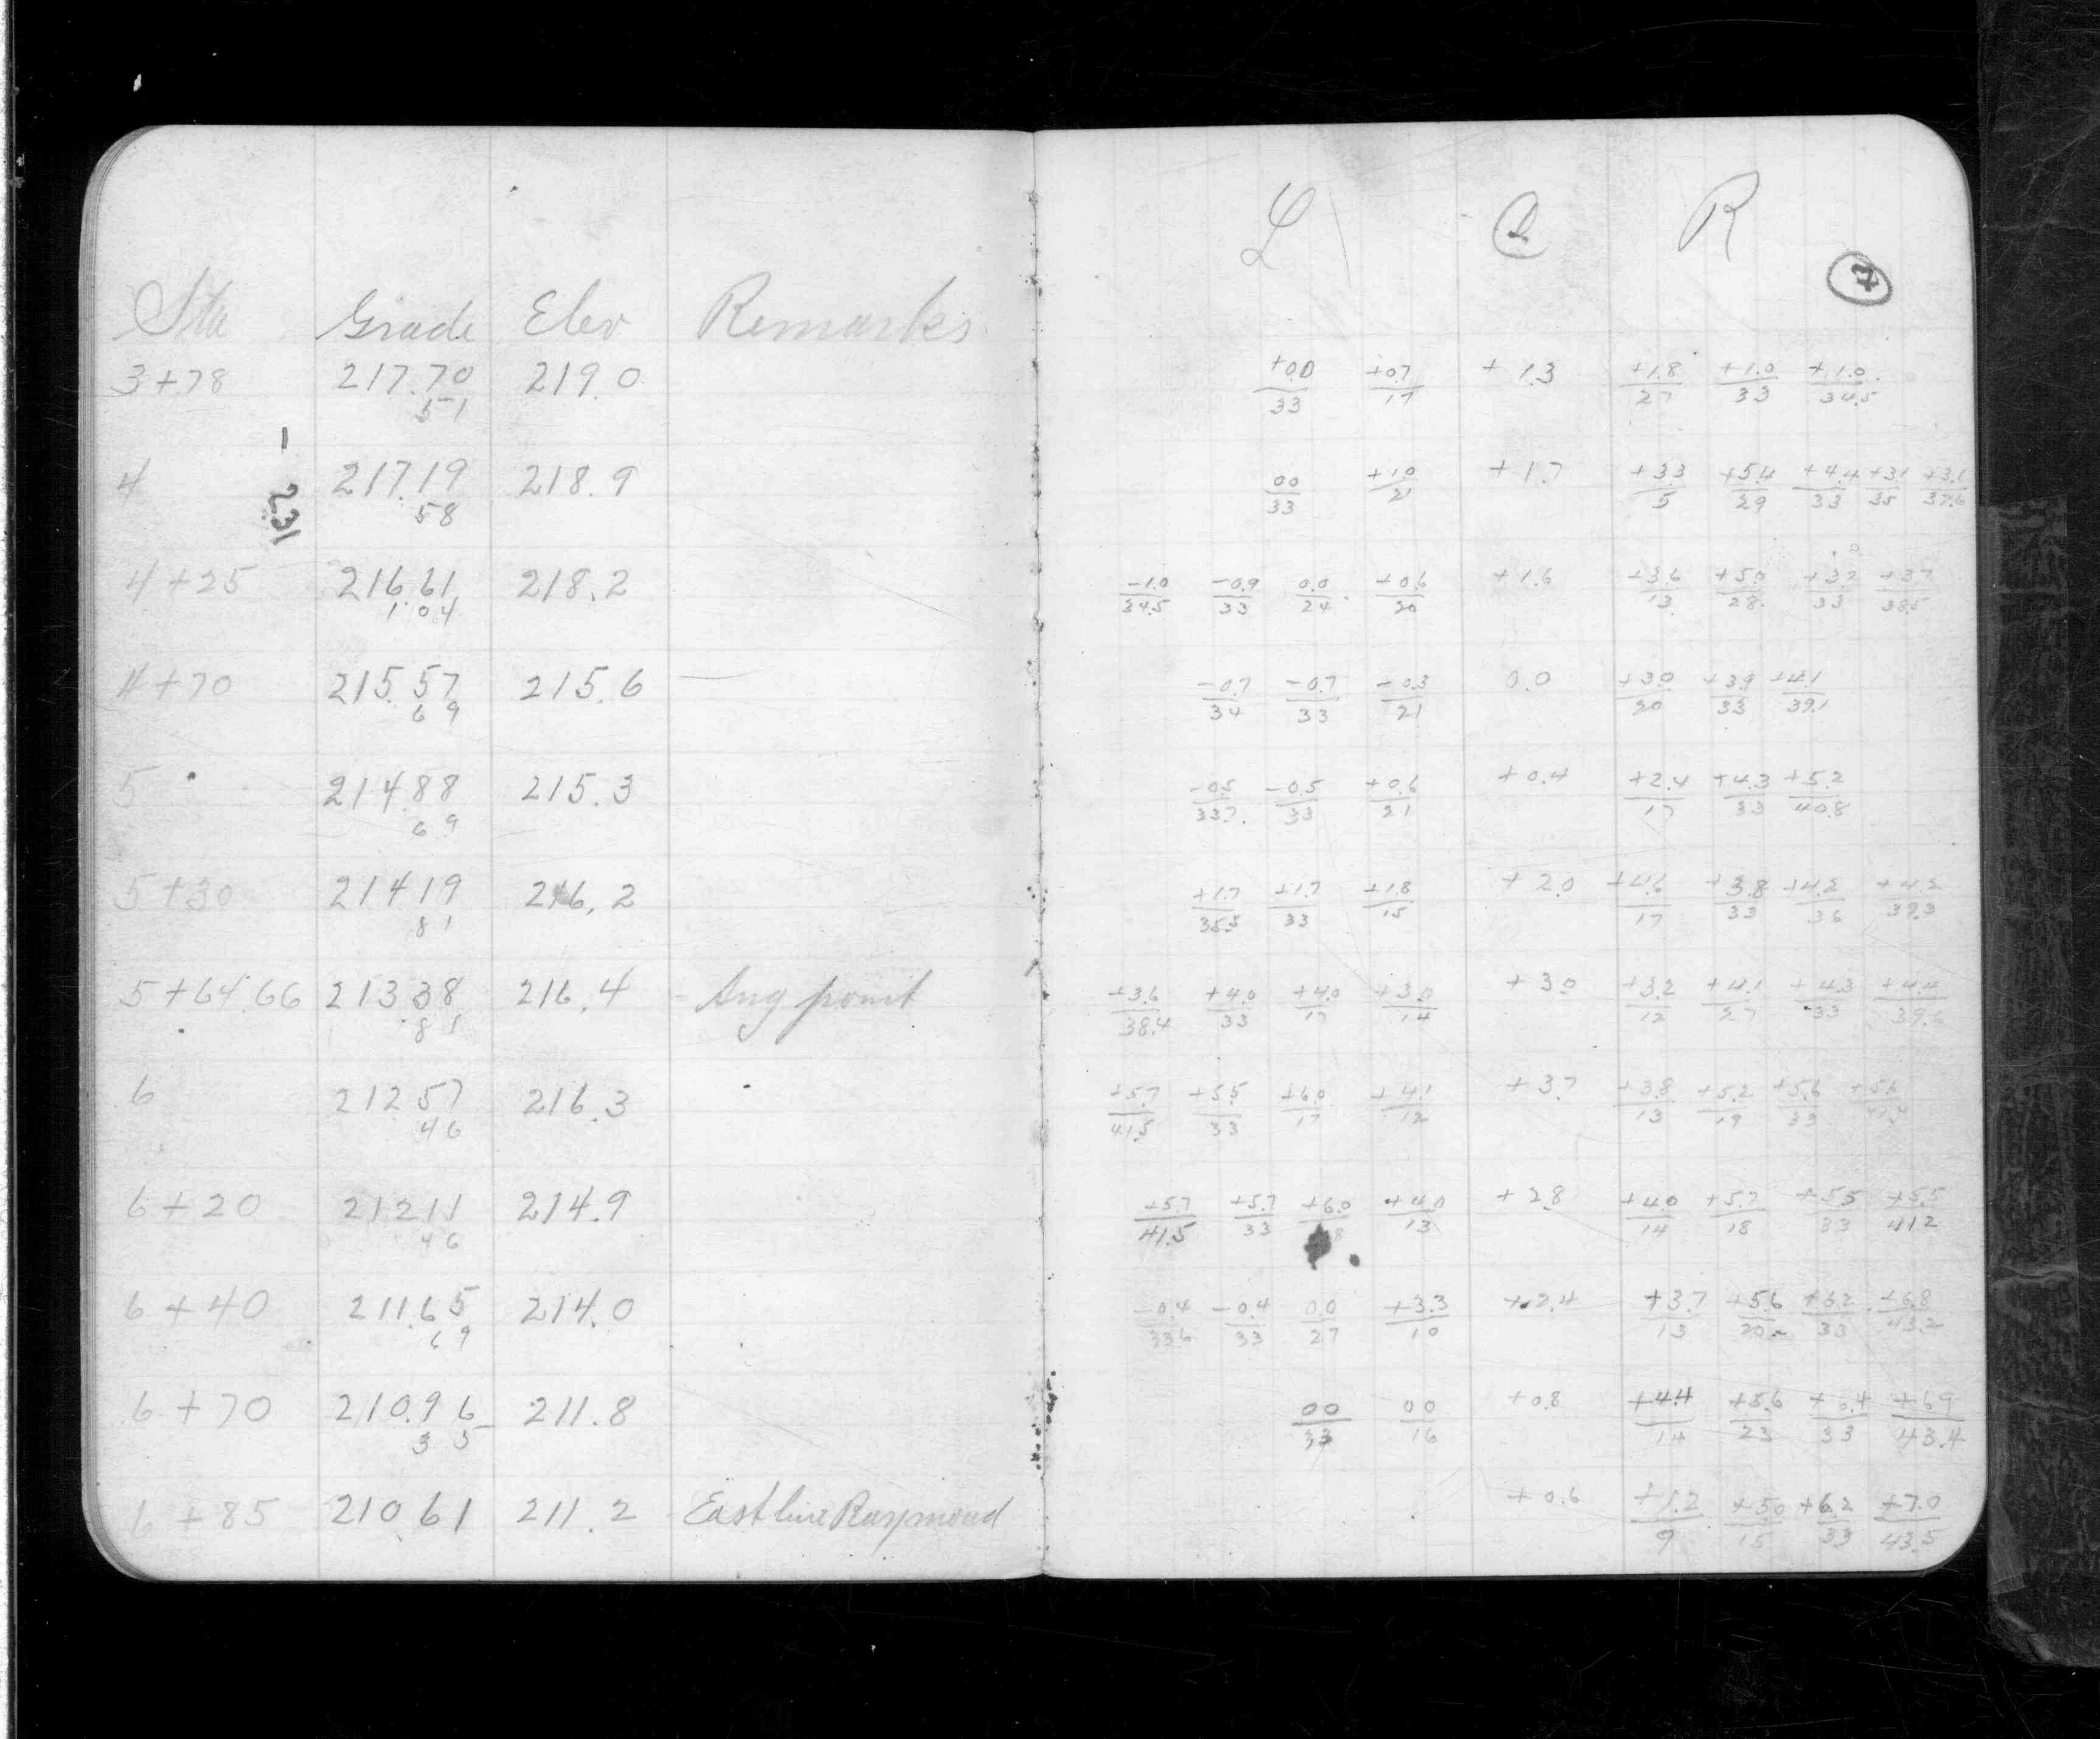 L C R
7
Sta Grade Elev Remarks
3+78 217.70 219.0 +0.0/33 +0.7/17 +1.3 +1.8/27 +1.0/33 +1.0/34.5
51
4 217.19 218.9 0.0/33 +1.0/21 +1.7 +3.3/5 +5.4/29 +4.4/33 +3.1/35 +3.1/37.6
58
- 2.31
4+25 216.61 218.2 -1.0/34.5 -0.9/33 0.0/24 +0.6/20 +1.6 +3.6/13 +5.0/28 +3.7/33 +3.7/38.5
1.04
4+70 215.57 215.6 -0.7/34 -0.7/33 -0.3/21 0.0 +3.0/20 +3.9/33 +4.1/39.1
69
5 214.88 215.3 -0.5/33.7 -0.5/33 +0.6/21 +0.4 +2.4/17 +4.3/33 +5.2/40.8
69
5+30 214.19 216.2 +1.7/35.5 +1.7/33 +1.8/15 +2.0 +4.6/17 +3.8/33 +4.2/36 +4.2/39.3
81
5+64.66 213.38 216.4 Ang point +3.6/38.4 +4.0/33 +4.0/17 +3.0/14 +3.0 +3.2/12 +4.1/27 +4.3/33 +4.4/39.6
81
6 212.57 216.3 +5.7/41.5 +5.5/33 +6.0/17 +4.1/12 +3.7 +3.8/13 +5.2/19 +5.6/33 +5.6/41.4
46
6+20 212.11 214.9 +5.7/41.5 +5.7/33 +6.0/18 +4.0/13 +2.8 +4.0/14 +5.7/18 +5.5/33 +5.5/41.2
46
6+40 211.65 214.0 -0.4/33.6 -0.4/33 0.0/27 +3.3/10 +2.4 +3.7/13 +5.6/20 +6.2/33 +6.8/43.2
69
6+70 210.96 211.8 0.0/33 0.0/16 +0.8 +4.4/14 +5.6/23 +6.4/33 +6.9/43.4
35
6+85 210.61 211.2 East line Raymond +0.6 +1.2/9 +5.0/15 +6.2/33 +7.0/43.5